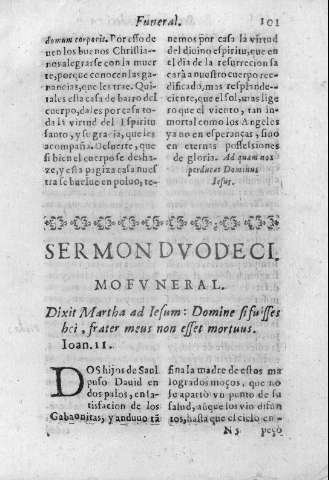 Funeral. 101
domum corporis. Por esso de
uen los buenos Christia-
nos alegrarse con la muer
te, porque conocen las ga-
nancias, que les trae. Qui-
tales esta casa de barro del
cuerpo, dales por casa to-
da la virtud del Espiritu
santo, y se gracia, que les
acompaña. De suerte, que
si bien el cuerpo se desha-
ze, y esta pagiza casa nues
tra se buelue en poluo, te-
nemos por casa la virtud
del diuino espiritu, que en
el dia de la resurreccion sa
cará a nuestro cuerpo ree-
dificado, mas resplande-
ciente, que el sol, mas lige
ro que el viento, tan in-
mortal como los Angeles
ya no en esperanças, sino
en eternas possessiones
de gloria. Ad quam nos
perducat Dominus
Iesus.
SERMON DVODECI.
MO FVNERAL.
Dixit Martha ad Iesum: Domine si fuisses
hei, frater meus non esset mortuus.
Ioan. 11.
DOS hijos de Saul
puso Dauid en
dos palos, en sa-
tisfacion de los
Gabaonitas, y anduuo tã
fina la madre de estos ma
logrados moços, que no
se apartò vn punto de su
salud, aũque los vio difun
tos, hasta que el cielo en-
N 5 peçò